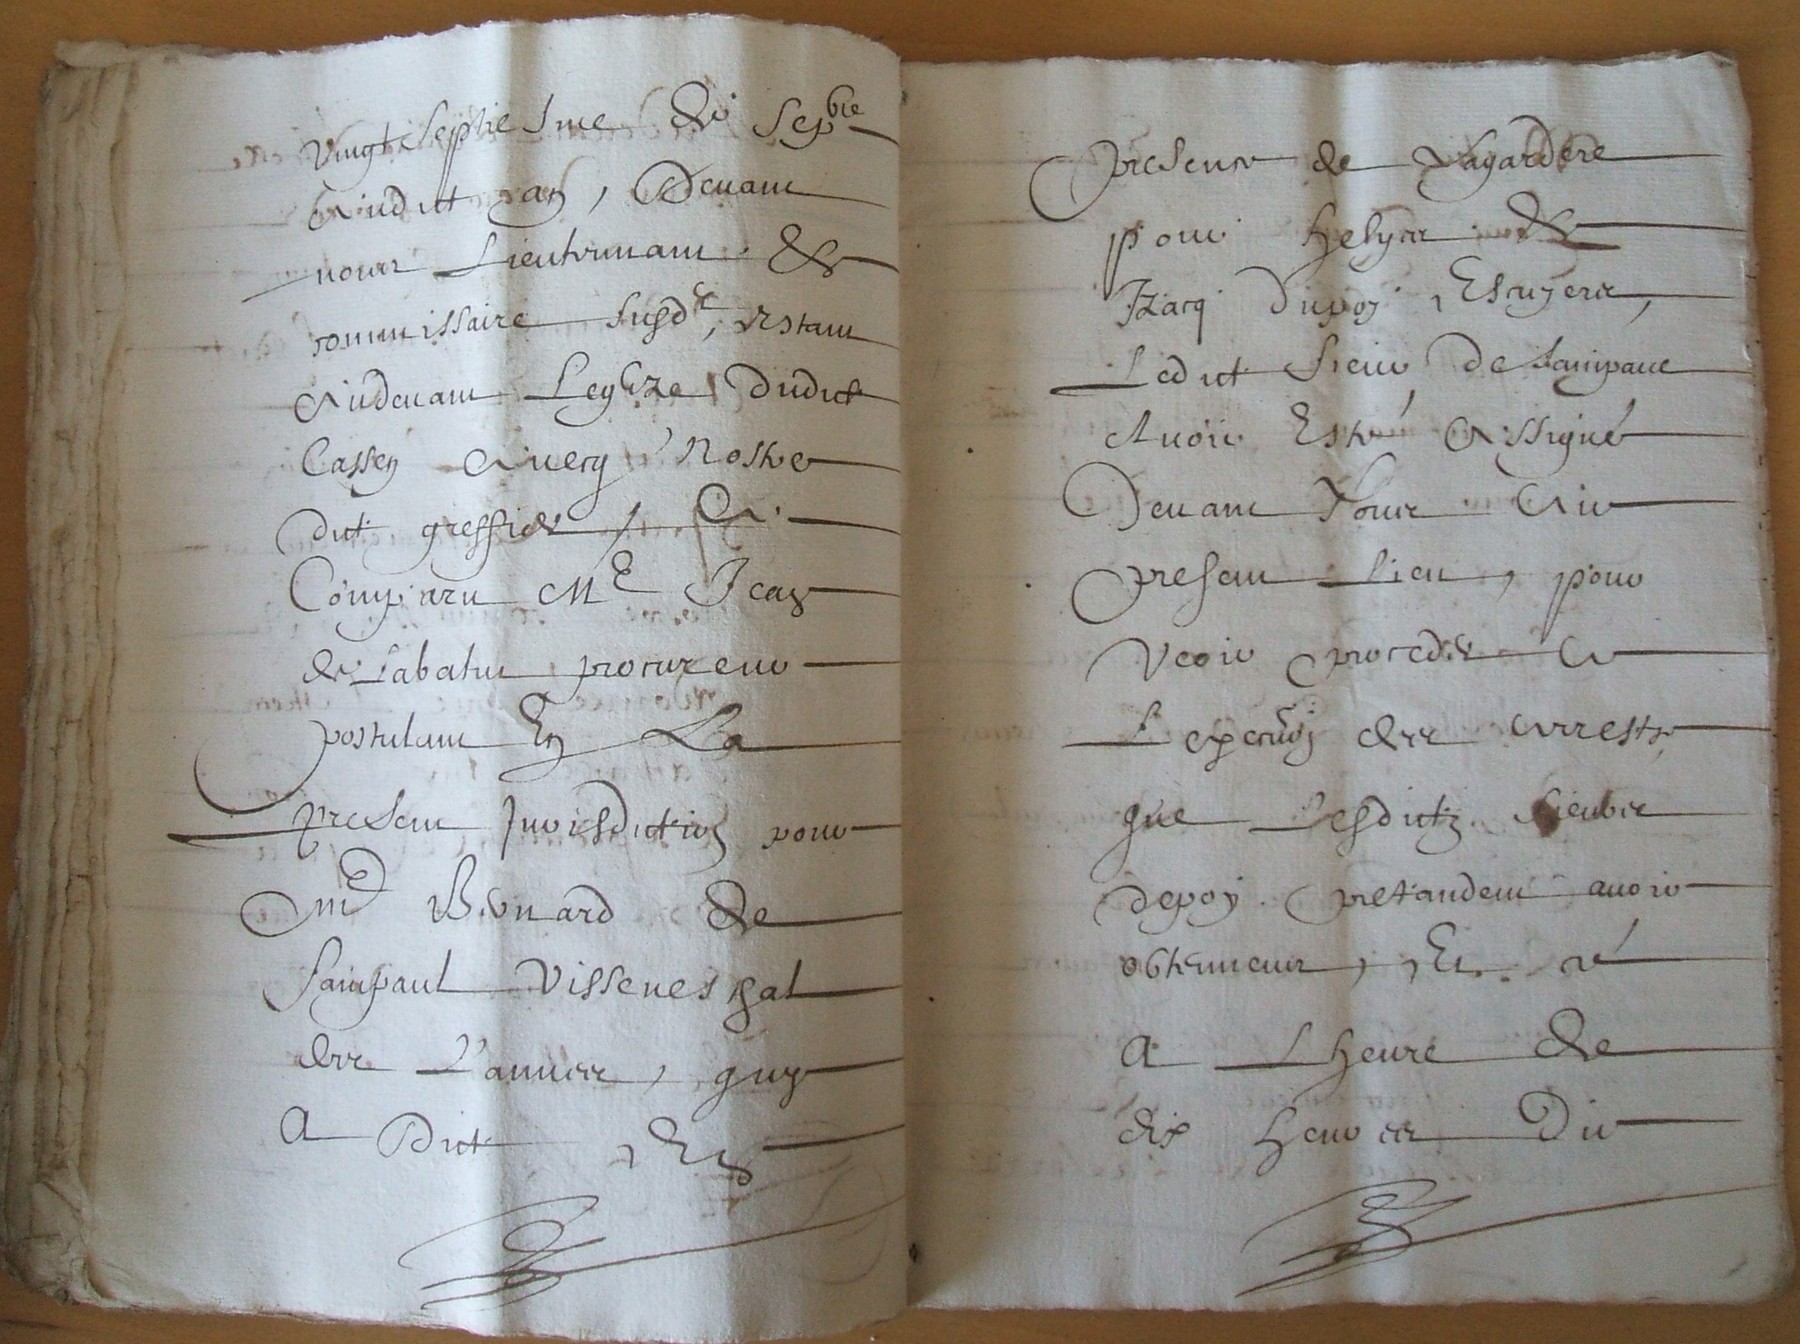 vingt septiesme de Sepbre
audict an, Devant
nous Lieutenant &
commissaire susde, Estant
audevant Leglize dudict
Cassen avecq Nostre
dict greffier, A
Comparu Me Jean
de Labatut procureur
postulant En La
present Jurisdiction pour
Me Bernard de
Sainpaul Vissenesgal
des Lannes, quy
a dict En
presence de Lagardere
pour Helyes &
Izacq Dupoy Escuyers,
Ledict sieur de Sainpaul
Avoir Esté Assigné
Devant Nous Au
presant Lieu, pour
Veoir proceder a
L execuon des arrestz
que Lesdictz sieurs
depoy pretandent avoir
obtenneus, Et ce
a L heure de
dix heures Du